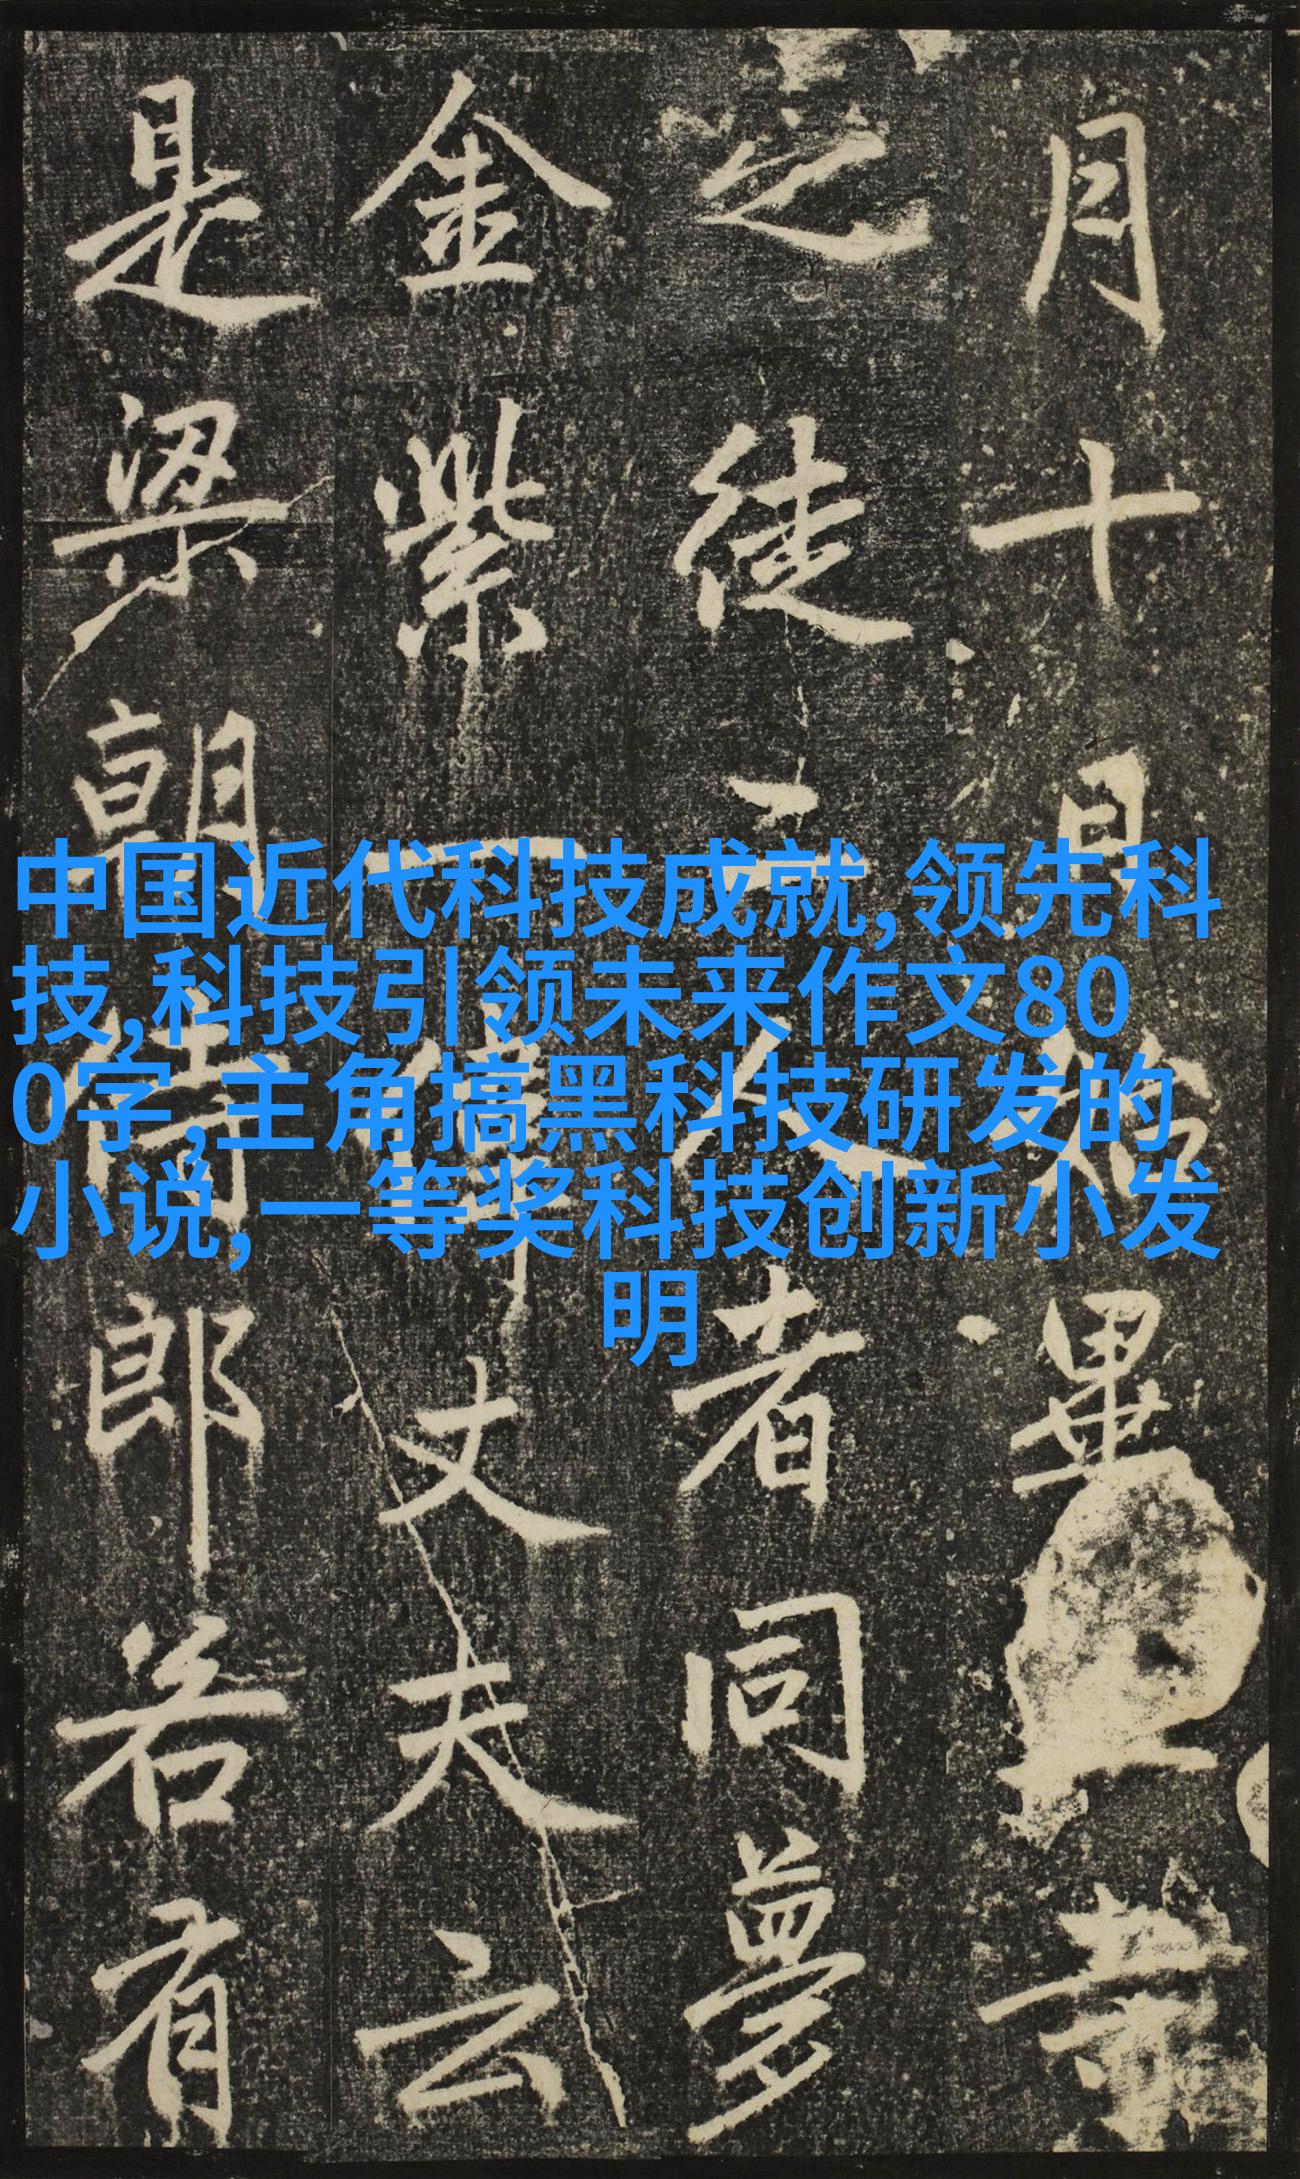 月十日
畢
之徒
人者同夢
金紫一偉丈夫云
是梁朝侍郎若有
中国近代科技成就,领先科
技,科技引领未来作文80
0字,主角搞黑科技研发的
小说,一等奖科技创新小发
明